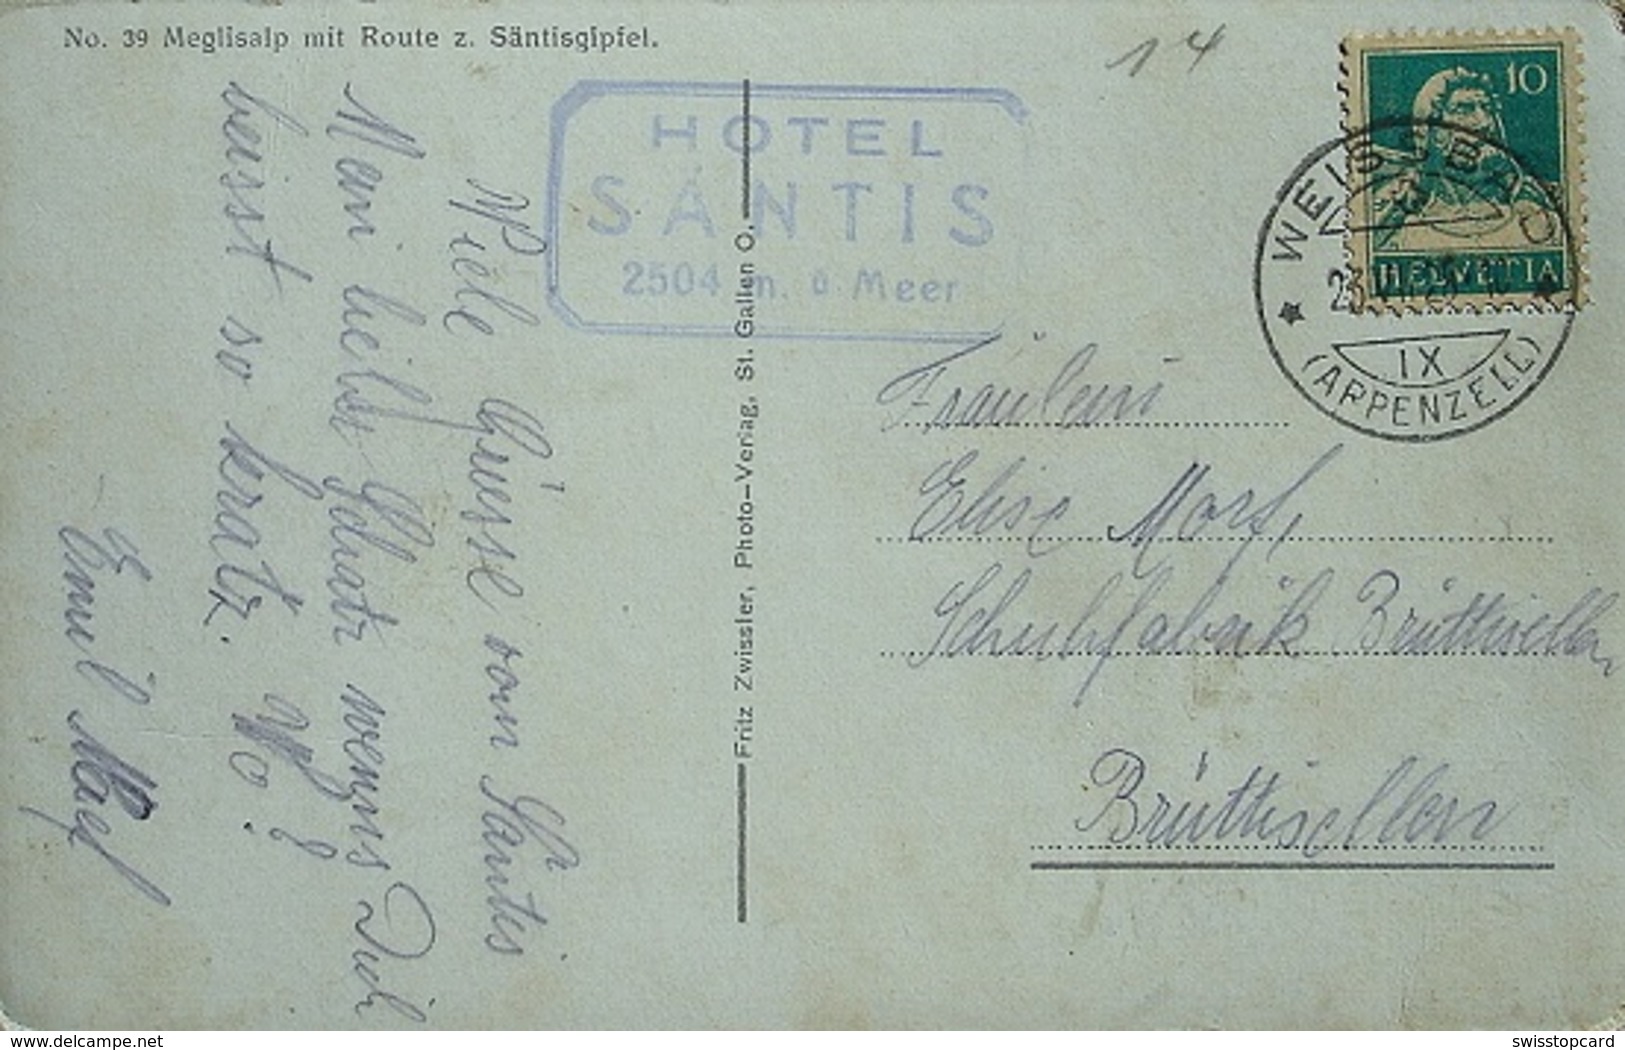 No. 39 Meglisalp mit Route z. Säntisgipfel.
14
HOTEL
SÄNTIS
2504 m. ü Meer
10
HELVETIA
WEISSBAD
IX
(APPENZELL)
Fritz Zwissler, Photo-Verlag, St. Gallen O.
Viele Grüsse vom Säntis
Mein lieber Schatz wenns Dich
beisst so kratz. Wo?
Emil
Fräulein
Elise Morf,
Schuhfabrik Brüttisellen
Brüttisellen
delcampe.net
swisstopcard